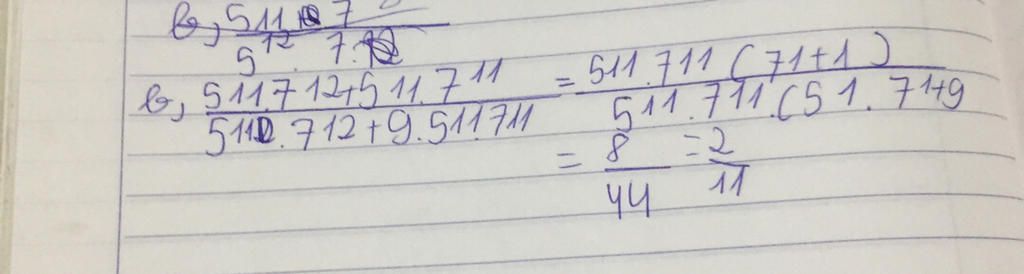 b, 511 7
5 12. 7.
b, 511.712+511.711 = 511.711 (71+1)
5112.712+9.511.711 511.711.(51.71+9
= 8 = 2
44 11